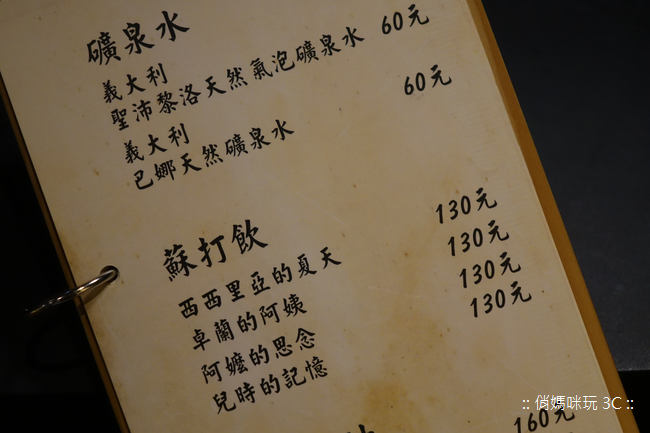 礦泉水
義大利
聖沛黎洛天然氣泡礦泉水 60元
義大利
巴娜天然礦泉水 60元
蘇打飲
西西里亞的夏天 130元
卓蘭的阿姨 130元
阿嬤的思念 130元
兒時的記憶 130元
160元
:: 俏媽咪玩 3C ::